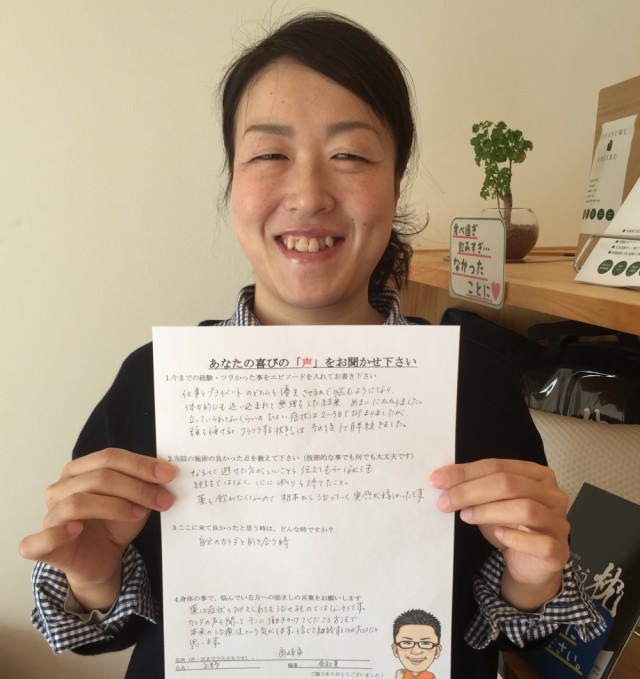 食べ過ぎ
飲みすぎ…
なかった
ことに
あなたの喜びの「声」をお聞かせ下さい
1.今までの経験・ツラかった事をエピソードを入れてお書き下さい
仕事とプライベートのどちらを優先させるかで悩むようになり、
体力的にも追い込まれて無理をした結果、めまいになりました。
立っていられないくらいのひどい症状は2〜3日で治まりましたが、
頭を傾けるとクラクラする状態は、その後1ヶ月半続きました。
2.当院の施術の良かった点を教えて下さい（技術的な事でも何でも大丈夫です）
なるべく避けた方がいいことを伝えつつも
絶対ではなく、心にゆとりを持てたこと。
薬を飲みたくないので根本から治っていく実感が嬉しかったです
3.ここに来て良かったと思う時は、どんな時ですか？
自分のカラダと向き合う時
4.身体の事で、悩んでいる方への励ましの言葉をお願いします
薬は症状を抑えられても治せるものではないそうです。
カラダの声を聞いて、そこに働きかけてくださる方法で
本来の治療法という気がします。信じて継続することが大切だと
思います。
会社員
ご協力ありがとうございました！